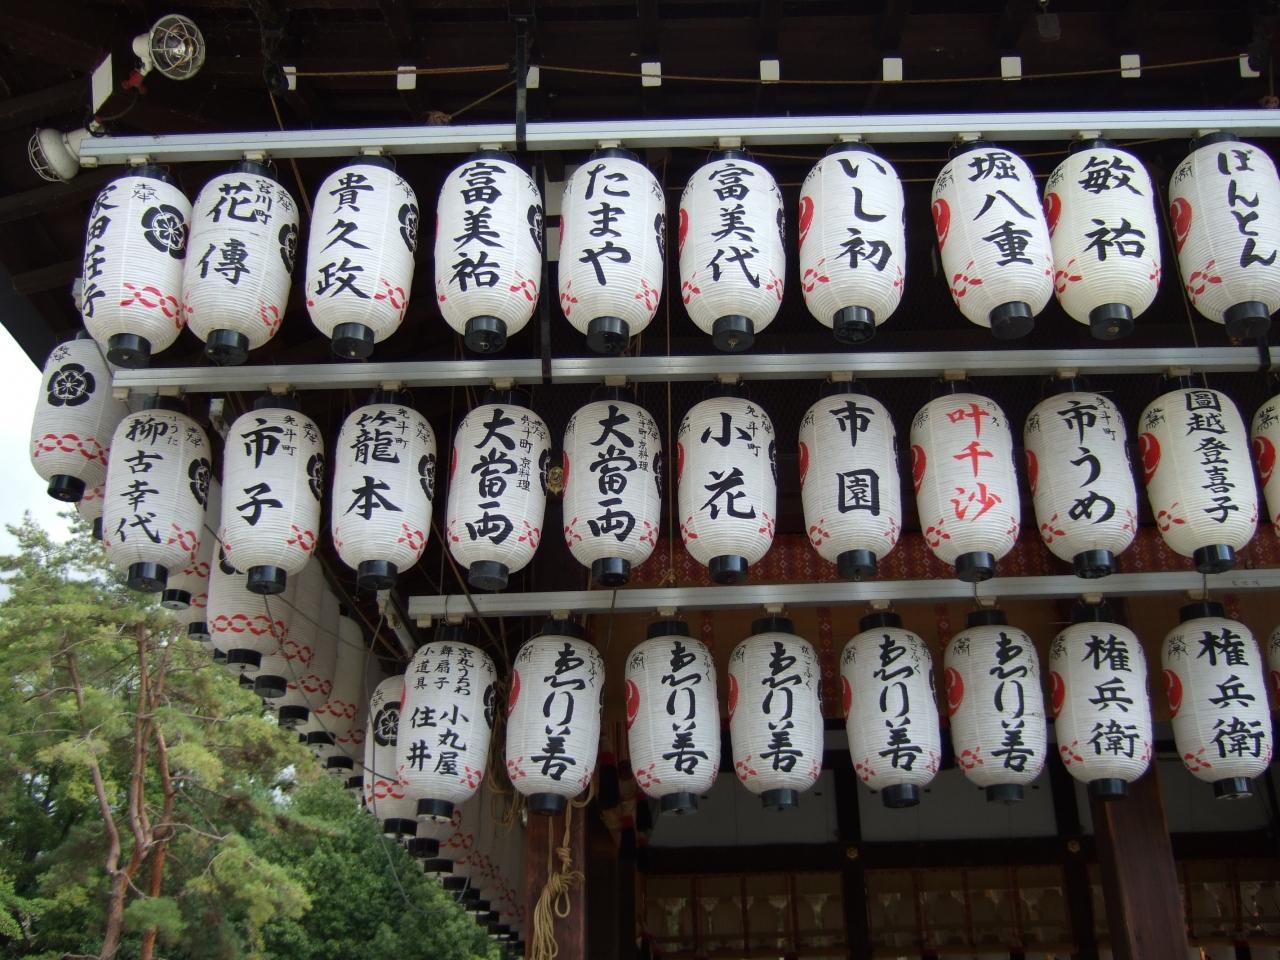 奉
家田荘子
宮川町
花傳
貴久政
富美祐
たまや
富美代
いし初
堀八重
敏祐
ぼんとん
うた
柳古幸代
先斗町
市子
先斗町
竹龍本
先斗町 京料理
大當両
先斗町 京料理
大當両
先斗町
小花
市園
叶千沙
先斗町
市うめ
圓越登喜子
京丸うちわ
舞扇子
小道具
小丸屋
住井
ゑり善
ゑり善
ゑり善
ゑり善
ゑり善
権兵衛
権兵衛